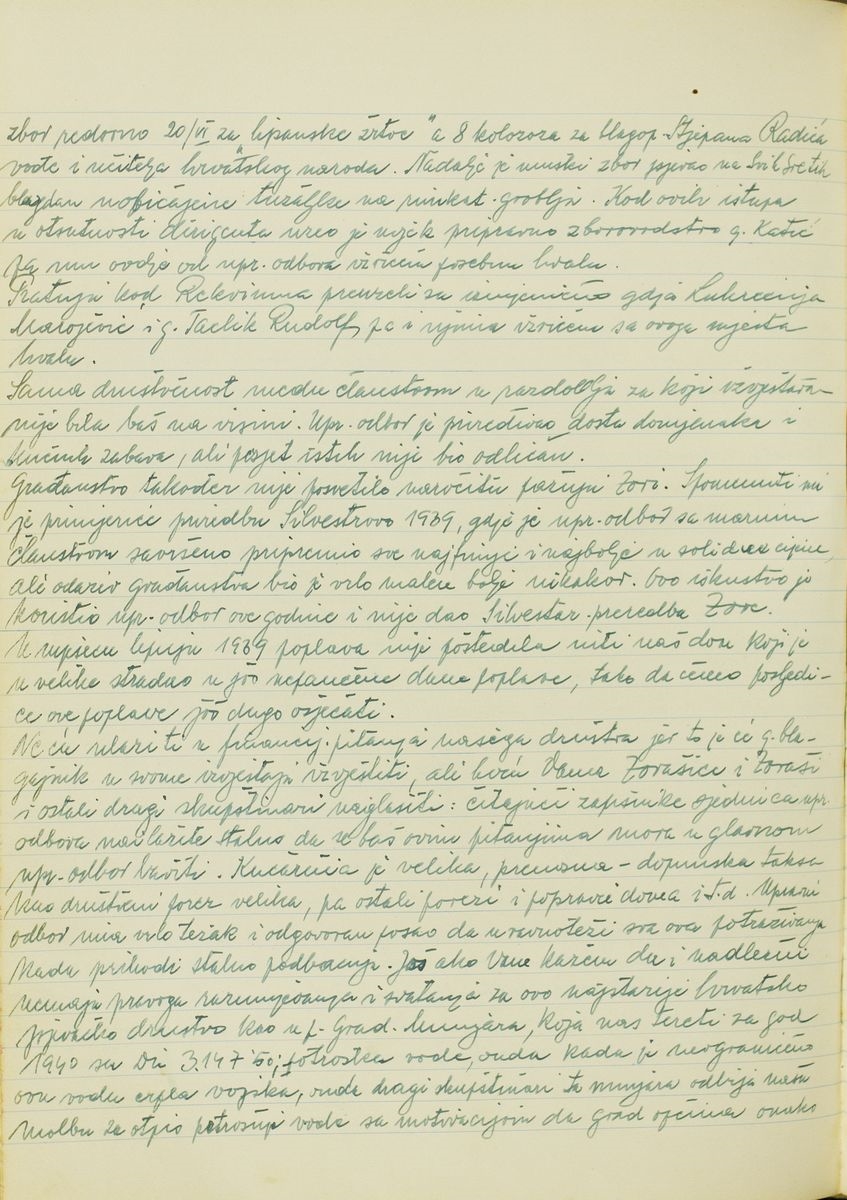 zbor redovno 20/VI za lipanske žrtve " a 8 kolovoza za blagop. Stjepana Radića
vođe i učitelja hrvatskog naroda. Nadalje je muški zbor pjevao na Svih Svetih
blagdan uobičajene tužaljke na rimkat. groblju. Kod ovih istupa
u otsutnosti dirigenta uzeo je uvjek pripravno zborovodstvo g. Katić
pa mu ovdje od upr. odbora izričem posebnu hvalu.
Pratnju kod Rekviuma preuzeli su izmjenično gdja Lukrecija
Matojević i g. Taclik Rudolf, pa i njima izričem sa ovoga mjesta
hvalu.
Sama društvenost među članstvom u razdoblju za koji izvještava-
nije bila baš na visini. Upr. odbor je priređivao dosta domjenaka i
kućnih zabava, ali posjet istih nije bio odličan.
Građanstvo također nije posvetilo naročitu pažnju Zori. Spomenuti mi
je primjerice priredbu Silvestrovo 1939, gdje je upr. odbor sa marnim
članstvom savršeno pripremio sve najfinije i najbolje u solidne cijene,
ali odaziv građanstva bio je vrlo malen bolje nikakov. Ovo iskustvo je
koristio upr. odbor ove godine i nije dao Silvestar. priredba Zore.
U mjesecu lipnju 1939 poplava nije poštedila niti naš dom koji je
u velike stradao u još nepamćene dane poplave, tako da ćemo posljedi-
ce ove poplave još dugo osjećati.
Ne ću ulaziti u financij. pitanja našega društva jer to je će g. bla-
gajnik u svome izvještaju izvjestiti, ali hoću Vama Zorašice i Zoraši
i ostali dragi skupštinari naglasiti: čitajući zapisnike sjednica upr.
odbora nailazite stalno da se baš ovim pitanjima mora u glavnom
upr. odbor baviti. Kućarina je velika, prenosna - dopunska taksa
kao društveni porez velika, pa ostali porezi i popravci doma i t. d. Upravni
odbor ima vrlo težak i odgovoran posao da uravnoteži sva ova potraživanja
kada prihodi stalno podbacuju. Još ako Vam kažem da i nadležni
nemaju pravoga razumjevanja i svatanja za ovo najstarije hrvatsko
pjevačko društvo kao n. p. Grad. Munjara, koja nas tereti za god
1940 sa Din 3.147 50; potroška vode, onda kada je neograničeno
ovu vodu crpla vojska, onda dragi skupštinari ta munjara odbija našu
molbu za otpis potrošnje vode sa motivacijom da grad općina ovako